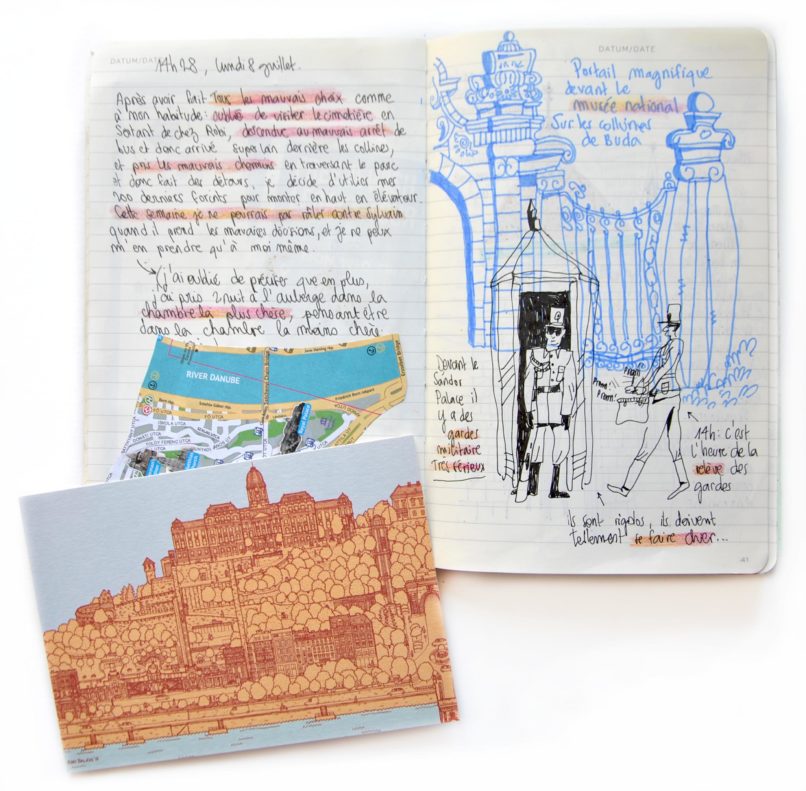 DATUM/DATE
14h28, lundi 8 juillet.
Après avoir fait Tous les mauvais choix comme
à mon habitude: oublié de visiter le cimetière en
sortant de chez Robi, descendre au mauvais arrêt de
bus et donc arrivé supa loin derrière les collines,
et pris les mauvais chemins en traversant le parc
et donc fait des détours, je décide d'utiliser mes
200 derniers forints pour monter en haut en élévateur.
Cette semaine je ne pourrais pas râler contre Sylvain
quand il prend les mauvaises décisions, et je ne peux
m'en prendre qu'à moi même.
(j'ai oublié de préciser que en plus,
j'ai pris 2 nuit à l'auberge dans la
chambre la plus chère, pensant être
dans la chambre la moins chère.
RIVER DANUBE
ISKOLA UTCA
DONÁTI UTCA
TOLDY FERENC UTCA
DATUM/DATE
Portail magnifique
devant le
musée national
Sur les collines
de Buda
Devant le
Sándor
Palace il
y a des
gardes
militaire
Très sérieux
14h: c'est
l'heure de la
relève des
gardes
ils sont rigolos, ils doivent
tellement se faire chier...
41